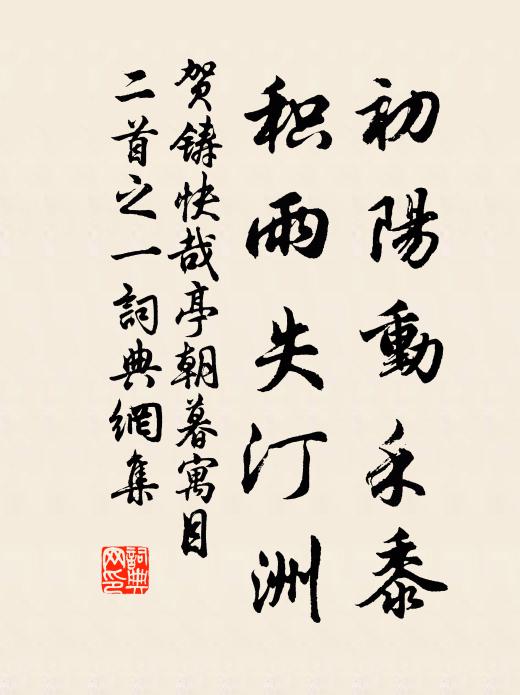 初陽動禾黍
积雨失汀洲
贺鑄快哉亭朝暮寓目
二首之一詞典網集
詞典網印